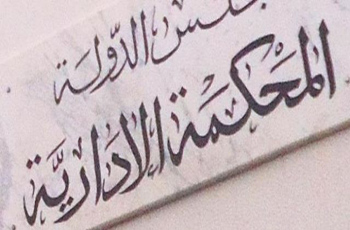 مجلس الدّولة
المحكمة الإداريَّة